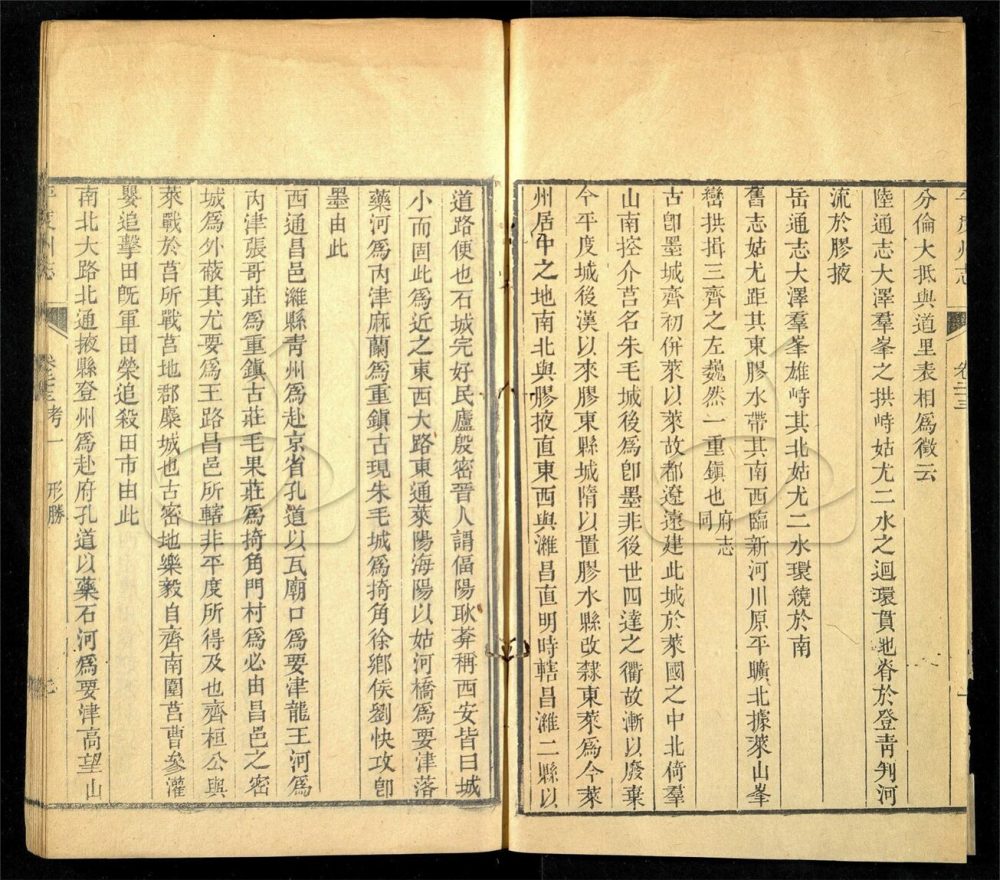 平度州志 卷二三
分倫大抵與道里表相爲徵云
陸通志大澤羣峯之拱峙姑尤二水之迴環貫地脊於登青判河
流於膠掖
岳通志大澤羣峯雄峙其北姑尤二水環繞於南
舊志姑尤距其東膠水帶其南西臨新河川原平曠北據萊山峯
巒拱揖三齊之左巍然一重鎮也府志同
古卽墨城齊初併萊以萊故都遼遠建此城於萊國之中北倚羣
山南控介莒名朱毛城後爲卽墨非後世四達之衢故漸以廢棄
今平度城後漢以來膠東縣城隋以置膠水縣改隸東萊爲今萊
州居中之地南北與膠掖直東西與濰昌直明時轄昌濰二縣以
道路便也石城完好民廬殷密晉人謂偪陽耿莽稱西安皆曰城
小而固此爲近之東西大路東通萊陽海陽以姑河橋爲要津落
藥河爲內津麻蘭爲重鎮古現朱毛城爲掎角徐鄉侯劉快攻卽
墨由此
西通昌邑濰縣青州爲赴京省孔道以瓦廟口爲要津龍王河爲
內津張哥莊爲重鎮古莊毛果莊爲掎角門村爲必由昌邑之密
城爲外蔽其尤要爲王路昌邑所轄非平度所得及也齊桓公與
萊戰於莒所戰莒地郡麋城也古密地樂毅自齊南圍莒曹參灌
嬰追擊田旣軍田榮追殺田市由此
南北大路北通掖縣登州爲赴府孔道以藥石河爲要津高望山
平度州志 考一 形勝